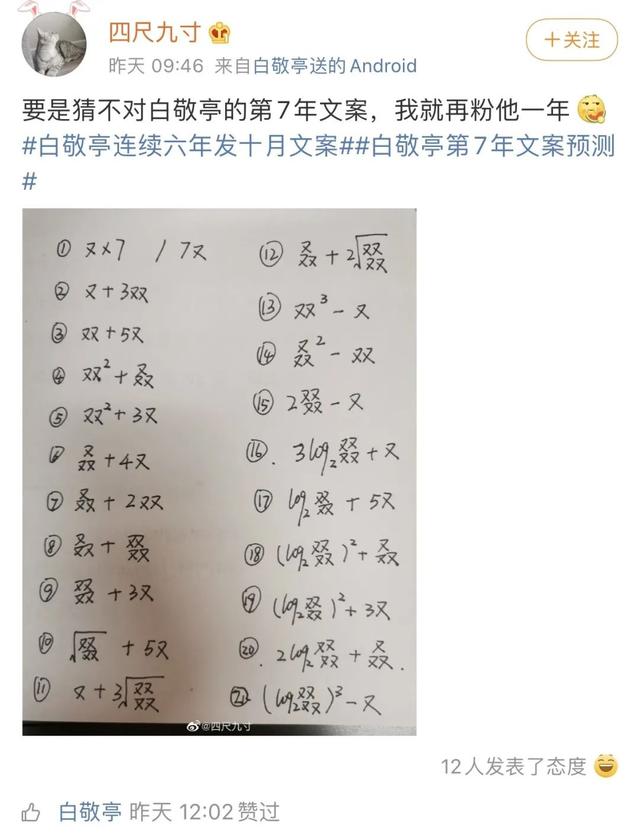 四尺九寸
+关注
昨天 09:46 来自白敬亭送的Android
要是猜不对白敬亭的第7年文案，我就再粉他一年
#白敬亭连续六年发十月文案##白敬亭第7年文案预测
#
① 又×7 / 7又
② 又+3双
③ 双+5又
④ 双²+叒
⑤ 双²+3又
⑥ 叒+4又
⑦ 叒+2双
⑧ 叒+叕
⑨ 叕+3又
⑩ √叕+5又
⑪ 又+3√叕
⑫ 叒+2√叕
⑬ 双³-又
⑭ 叒²-双
⑮ 2叕-又
⑯. 3log₂叕+又
⑰ log₂叕+5又
⑱ (log₂叕)²+叒
⑲ (log₂叕)²+3又
⑳. 2log₂叕+叒.
㉑ (log₂叕)³-又
@四尺九寸
12人发表了态度
白敬亭 昨天 12:02赞过